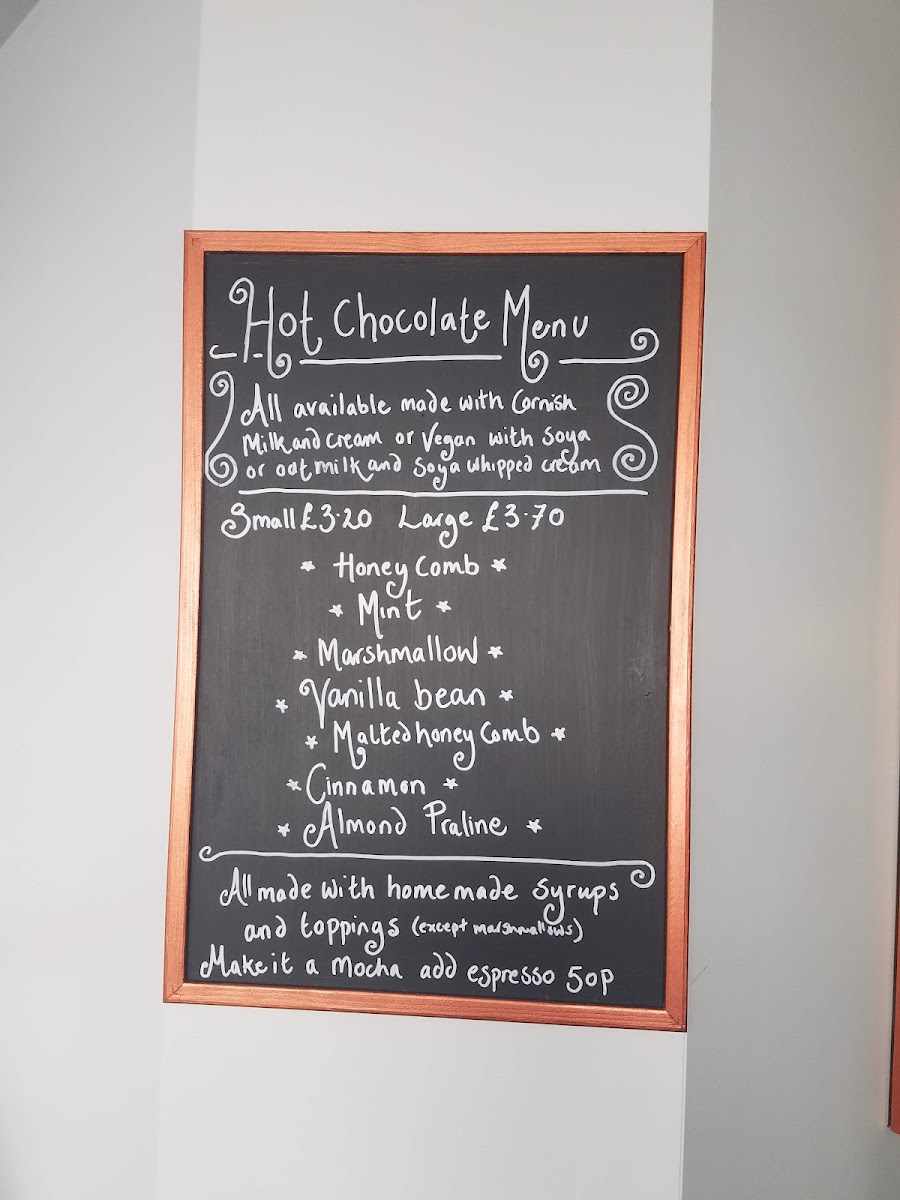 Hot Chocolate Menu
All available made with Cornish
Milk and cream or Vegan with Soya
or oat milk and Soya whipped cream
Small £3·20 Large £3·70
Honey Comb
Mint
Marshmallow
Vanilla bean
Malted honey Comb
Cinnamon
Almond Praline
All made with home made Syrups
and toppings (except marshmallows)
Make it a Mocha add espresso 50p